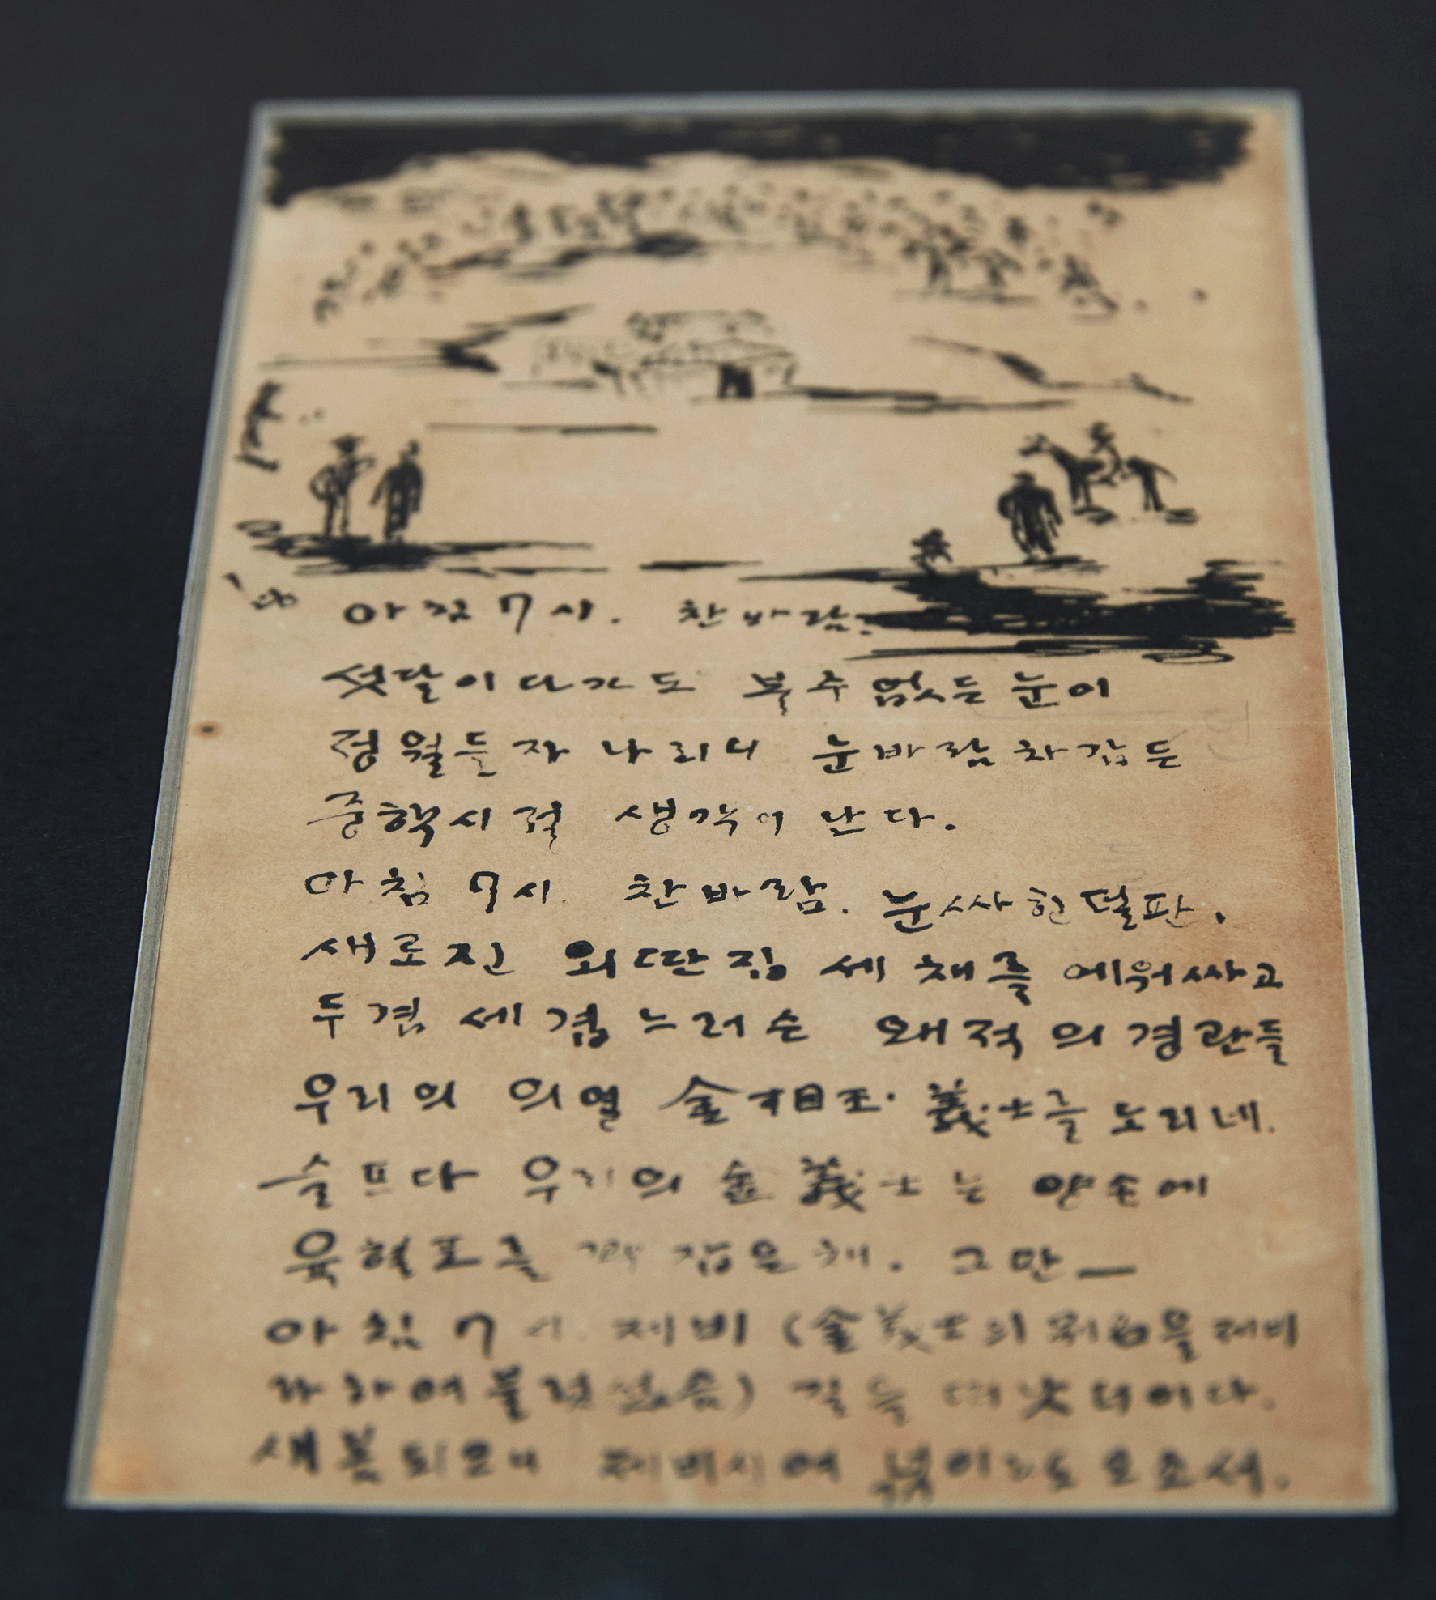 아침 7시. 찬바람.
섯달이 다가도 볼수 없든 눈이
정월들자 나리니 눈바람 차갑든
중학시적 생각이 난다.
아침 7시. 찬바람. 눈싸힌 덜판.
새로진 외딴집 세 채를 에워싸고
두겹 세겹 느러슨 왜적의 경관들
우리의 의열 金相玉 義士를 노리네.
슬프다 우리의 金義士는 양손에
육혈포를 꽉 잡은채. 그만—
아침 7시. 제비 (金義士의 別名을 제비
라하여 불럿섰슴) 길을 떠낫더이다.
새봄 되오니 제비시여 넋이라도 오소서.